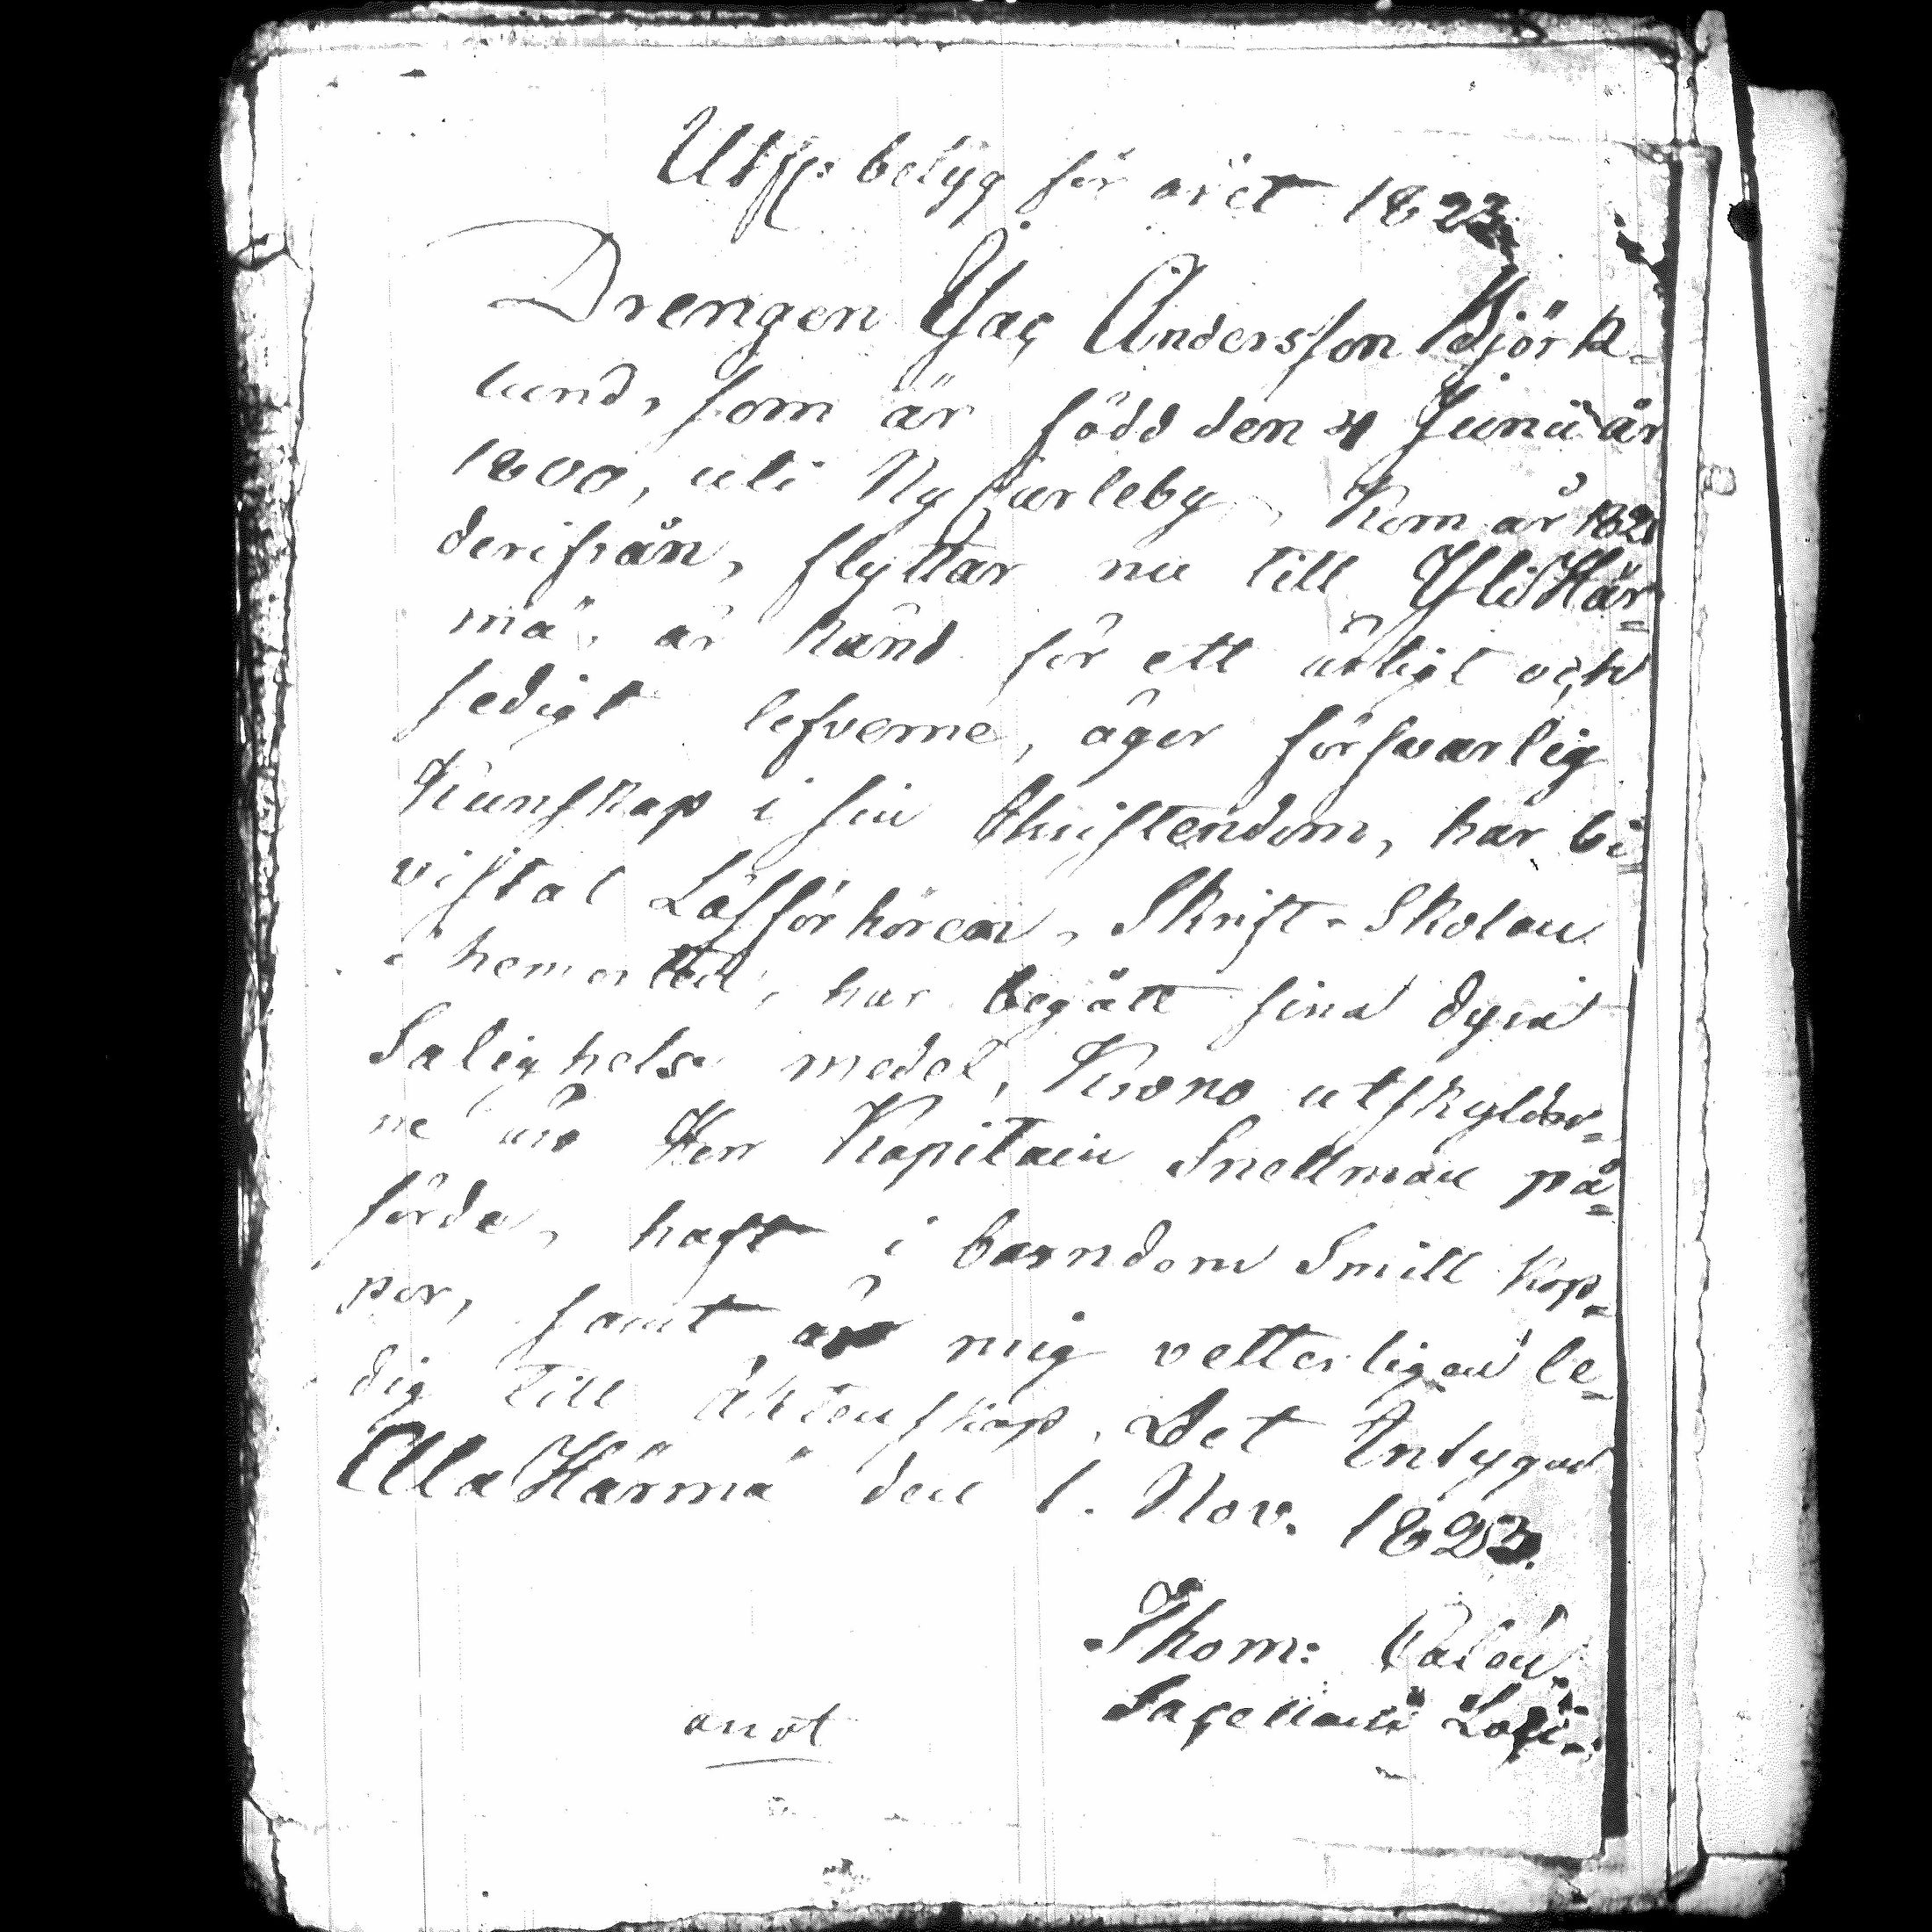 Utfl: betyg för året 1823
Drengen Jac Andersson Björk-
lund, som är född den 4 Junii år
1800, uti Ny Carleby, Kom år 1821
derifrån, flyttar nu till Yli Här=
mä, är känd för ett ärligt och
sedigt lefverne, äger försvarlig
Kunskap i sin Christendom, har bi=
vistat Läsförhören, Skrift-Skolan
i hemorten, har begått sina dyra
Salighets medel, Krono utskylder=
ne åro Herr Kapitain Snellman på=
förde, haft i barndom Små Kop=
por, samt är mig vetterligen le=
dig till äktenskap. Det Intygas
Ala Härmä den 1. Nov. 1823.
Thom:
Sacellani Loci
anot